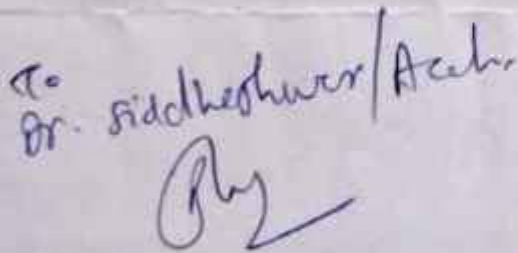 To
Dr. Siddheshwar/Acah.